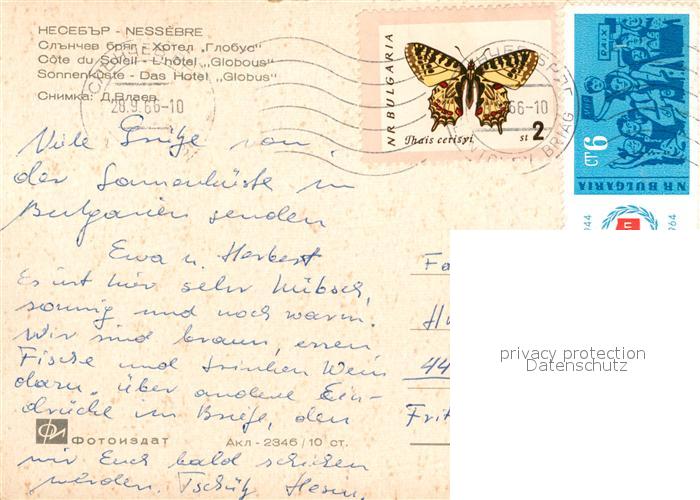 НЕСЕБЪР - NESSÈBRE
Слънчев бряг - Хотел „Глобус“
Côte du Soleil - L'hôtel „Globous“
Sonnenküste - Das Hotel „Globus“
Снимка: Д.Влаев
28.9.66-10
66-10
NR BULGARIA
Thais cerisyi st 2
PAIX
ст 9
N.R. BULGARIA
944 964
Viele Grüße von
der Sonnenküste in
Bulgarien senden
Ewa u. Herbert
Es ist hier sehr hübsch,
sonnig und noch warm.
Wir sind braun, essen
Fische und trinken Wein
dazu, über andere Ein-
drücke im Briefe, den
wir Euch bald schicken
werden. Tschüß
Fa
44
Frit
privacy protection
Datenschutz
ФИ Фотоиздат Акл - 2346/10 ст.